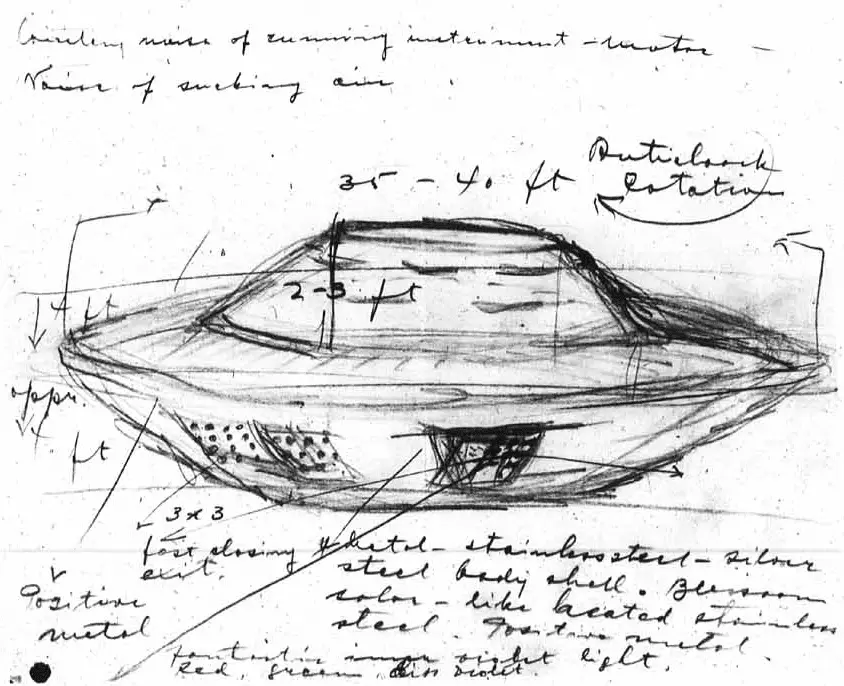 noise of running instrument - motor -
Noise of sucking air
35 - 40 ft
rotation
2-3 ft
4 ft
appr.
4. ft
3 x 3
fast closing
exit.
Metal - stainless steel - silver
steel body shell.
color - like heated stainless
steel. Positive metal.
Positive
metal
violet light.
Red, green, violet.